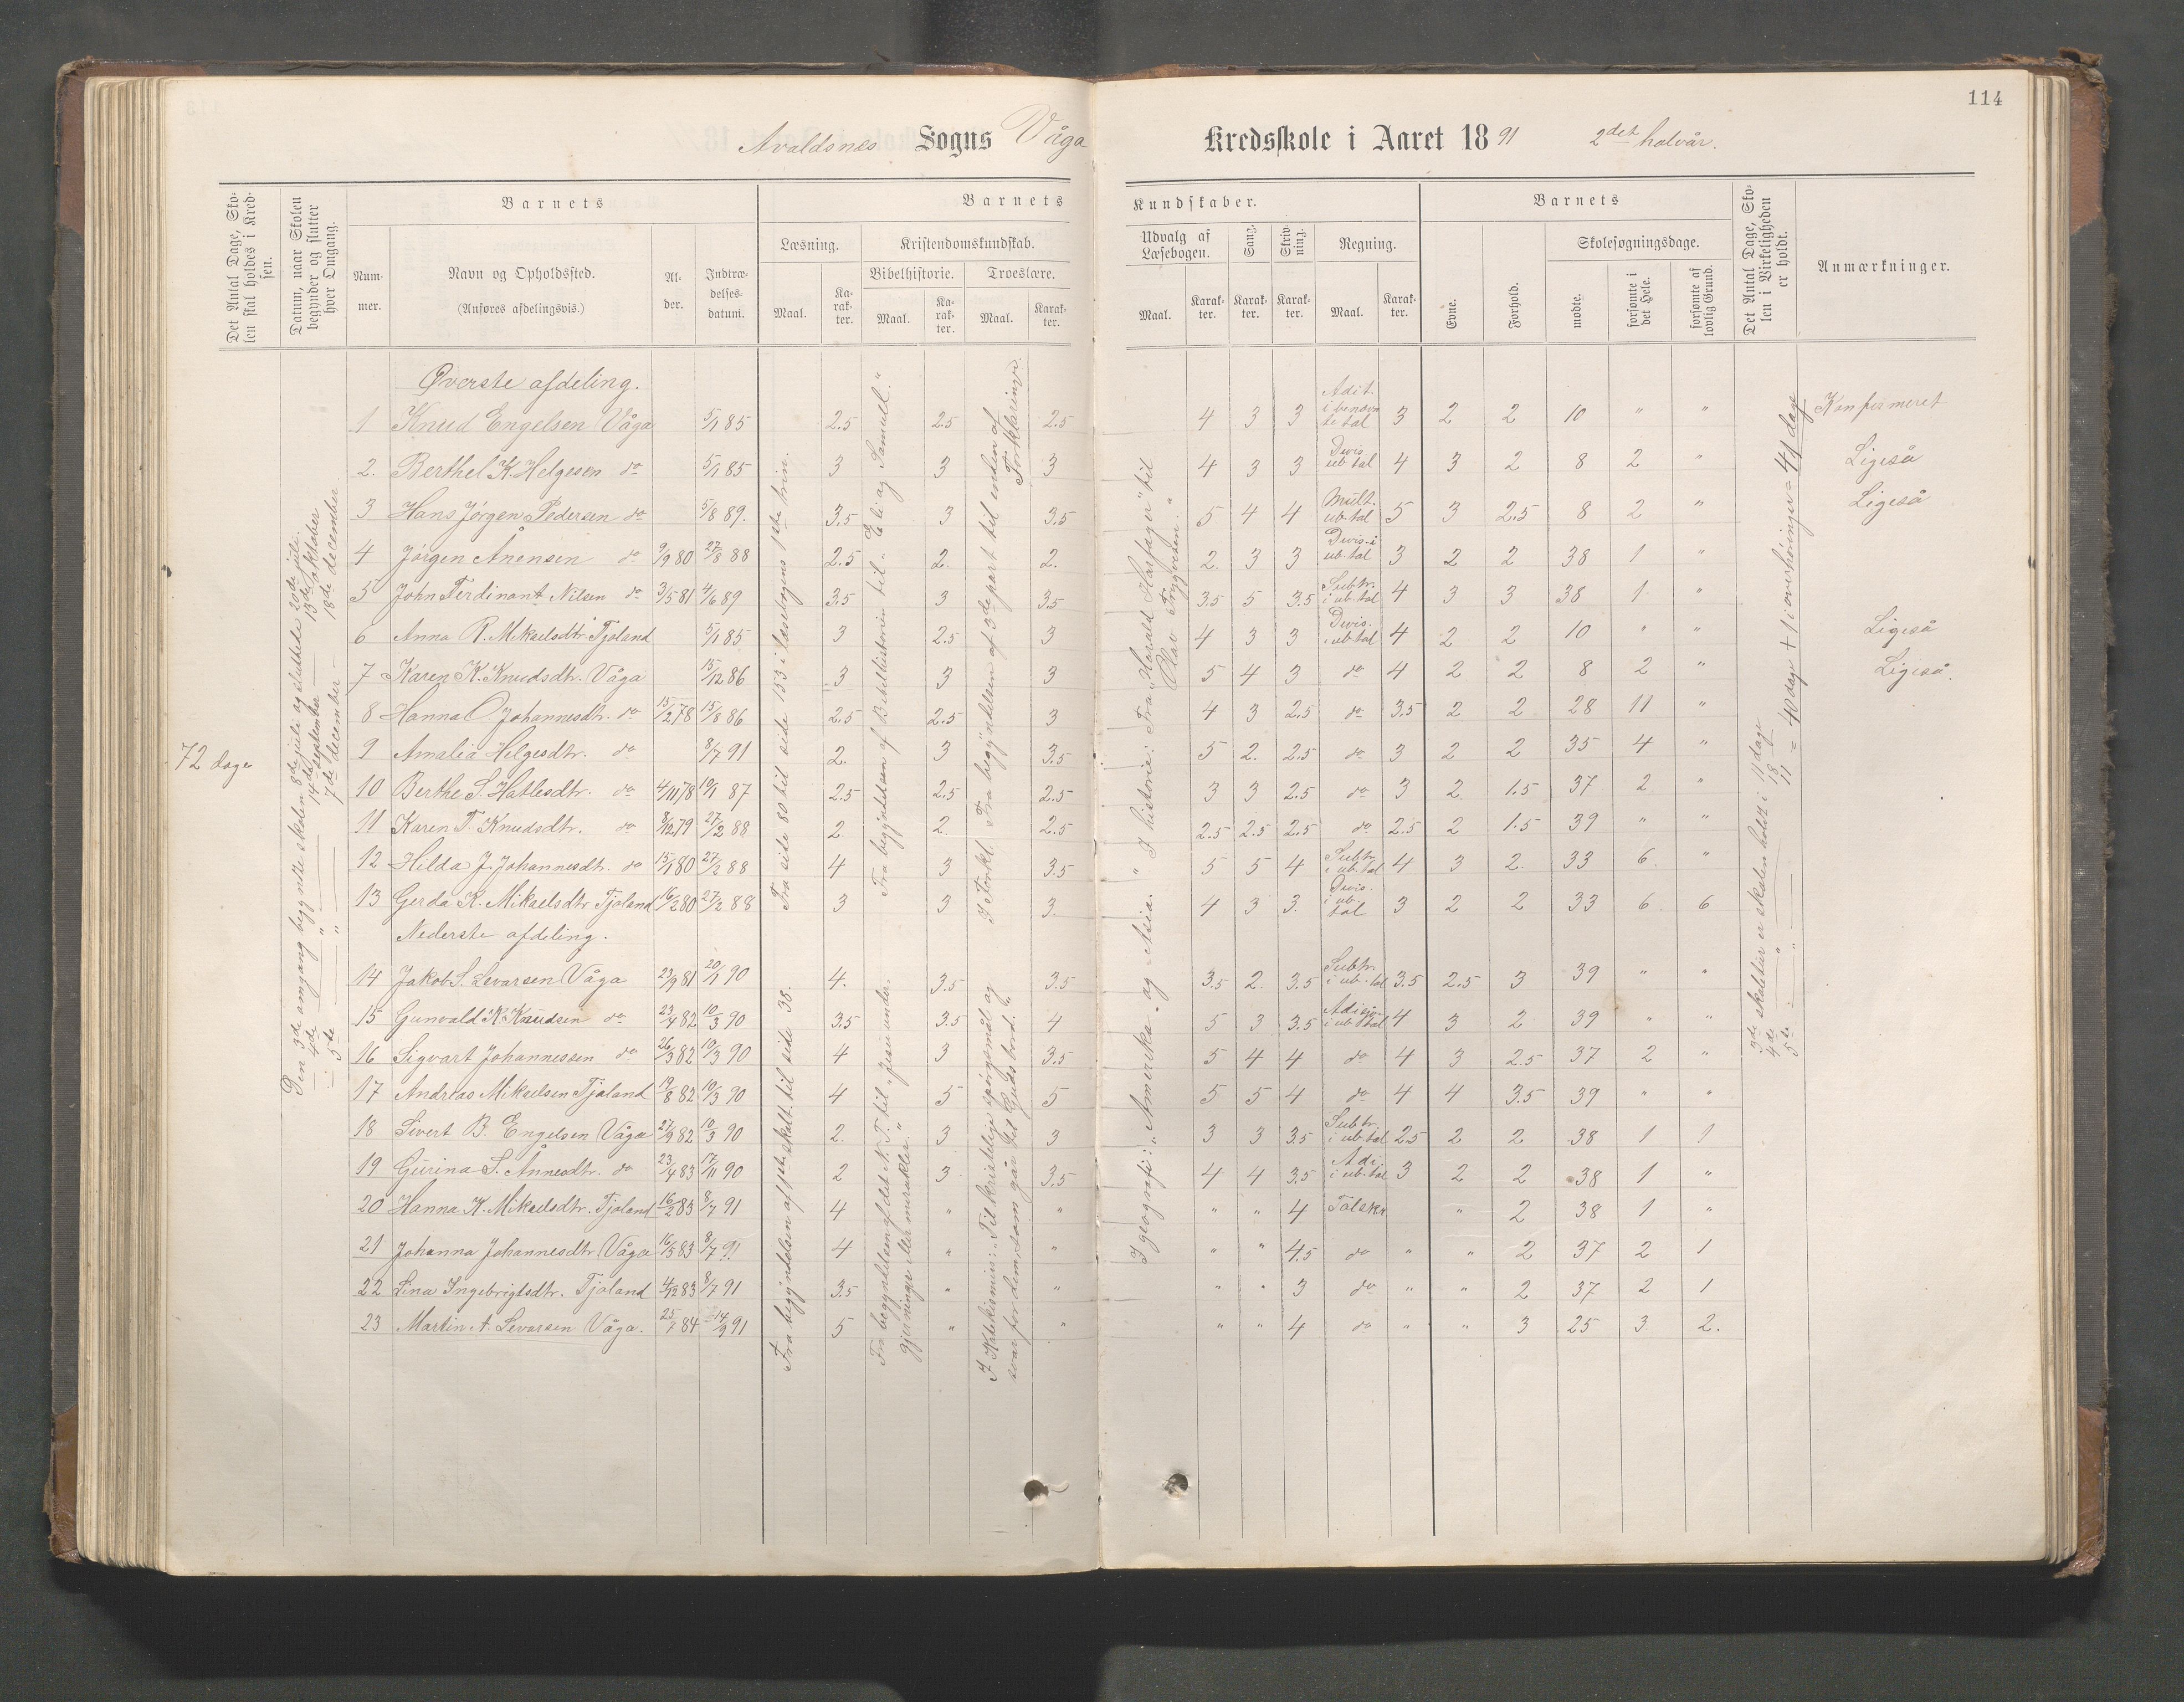 114
Avaldsnes Sogns Våga Kredsskole i Aaret 1891 2det halvår.
Det Antal Dage, Skolen skal holdes i Kredsen.
Datum, naar Skolen begynder og slutter hver Omgang.
Barnets
Nummer.
Navn og Opholdssted.
(Anføres afdelingsvis.)
Alder.
Indtrædelsesdatum.
Barnets Kundskaber.
Læsning.
Maal.
Karakter.
Kristendomskundskab.
Bibelhistorie.
Maal.
Karakter.
Troeslære.
Maal.
Karakter.
Udvalg af Læsebogen.
Maal.
Karakter.
Sang.
Karakter.
Skrivning.
Karakter.
Regning.
Maal.
Karakter.
Barnets
Evne.
Forhold.
Skolesøgningsdage.
mødte.
forsømte i det Hele.
forsømte af lovlig Grund.
Det Antal Dage, Skolen i Virkeligheden er holdt.
Anmærkninger.
72 dage
Den 3de omgang begyntte skolen 8de juli og sluttede 20de juli.
— 4de " — 14de september — 13de oktober
— 5te " — 7de december — 18de december.
Øverste afdeling.
1 Knud Engelsen Våga 5/1 85 2.5 2.5 2.5 4 3 3 Adit. i benævnte tal 3 2 2 10 " " Konfirmeret
2. Berthel K. Helgesen do 5/1 85 3 3 3 4 3 3 Divis ub tal 4 3 2 8 2 " Ligeså
3 Hans Jørgen Pedersen do 5/8 89. 3.5 3 3.5 5 4 4 Mult. ub. tal 5 3 2.5 8 2 " Ligeså
4 Jørgen Ånensen do 9/9 80 27/8 88 2.5 2. 2. 2. 3 3 Divis. i ub. tal 3 2 2 38 1 "
5 John Ferdinant Nilsen do 3/5 81 4/6 89 3.5 3 3.5 3.5 5 3.5 Subtr. i ub. tal 4 3 3 38 1 "
6 Anna R. Mikaelsdtr. Tjøland 5/1 85. 3 2.5 3 4 3 3 Divis. i ub tal 4 2 2 10 " " Ligeså
7 Karen K. Knudsdtr. Våga 15/12 86 3 3 3 5 4 3 do 4 2 2 8 2 " Ligeså.
8 Hanna O. Johannesdtr. do 15/2 78 15/8 86 2.5 2.5 3 4 3 2.5 do 3.5 2 2 28 11 "
9 Amalia Helgesdtr. do 8/7 91 2. 3 3.5 5 2. 2.5 do 3 2 2 35 4 "
10 Berthe S. Hatlesdtr. do 4/11 78 19/1 87 2.5 2.5 2.5 3 3 2.5 do 3 2 1.5 37 2 "
11 Karen T. Knudsdtr. do 8/12 79 27/2 88 2. 2. 2.5 2.5 2.5 2.5 do 2.5 2 1.5 39 " "
12 Hilda J. Johannesdtr. do 15/1 80 27/2 88 4 3 3.5 5 5 4 Subtr. i ub. tal 4 3 2. 33 6 "
13 Gerda K. Mikaelsdtr Tjøland 16/2 80 27/2 88 3 3 3. 4 3 3. Divis. i ub. tal 3 2 2 33 6 6
Nederste afdeling.
14 Jakob S. Levarsen Våga 23/9 81 20/1 90 4. 3.5 3.5 3.5 2. 3.5 Subtr. i ub. tal 3.5 2.5 3 39 " "
15 Gunvald K. Knudsen do 23/4 82 10/3 90 3.5 3.5 4 5 3 3.5 Adisjon i ub tal 4 3 2 39 " "
16 Sigvart Johannessen do 26/3 82 10/3 90 4 3 3.5 5 4 4 do 4 3 2.5 37 2 "
17 Andreas Mikaelsen Tjøland 19/8 82 10/3 90 4 5 5 5 5 4 do 4 4 3.5 39 " "
18 Sivert B. Engelsen Våga 27/9 82 10/3 90 2. 3 3 3 3 3.5 Subtr. i ub. tal 2.5 2 2 38 1 1
19 Gurina S. Ånnesdtr. do 23/4 83 17/11 90 2 3 3.5 4 4 3.5 Adi. i ub. tal 3 2 2 38 1 "
20 Hanna K. Mikaelsdtr. Tjøland 16/2 83 8/7 91 4 " " " " 4 Talskr " 2 38 1 "
21 Johanna Johannesdtr Våga 16/5 83 8/7 91 4 " " " " 4.5 do " " 2 37 2 1
22 Lina Ingebrigtsdtr. Tjøland 4/12 83 8/7 91 3.5 " " " " 3 do " " 2 37 2 1
23 Martin A. Levarsen Våga. 25/7 84 14/9 91 5 " " " " 4 do " " 3 25 3 2.
Fra side 80 til side 153 i læsebogens 1ste trin.
Fra begyndelsen af 1ste skoltt. til side 38.
Fra begyndelsen af Bibelhistorien til „Eli og Samuel."
Fra begyndelsen af det N. T. til „Jesu under-gjerninger eller mirakler."
I Forkl. Fra begyndelsen af 3de part til enden af Forklaringe
I Katekismus: Til kristelige spørgsmål og svar for dem, som går til Guds bord."
I geografi: „Amerika" og Asia. " I historie: Fra „Harald Hårfager" til „Olav Trygvesen."
3de skoletur er skolen holdt i 11 dage
4de " — 18 "
5te " — 11 = 40 dage + 1 i overhøringe = 41 dage